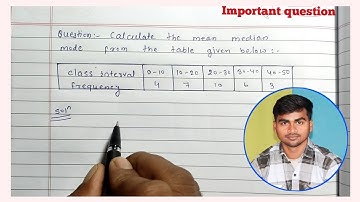 Important question
Question:- Calculate the mean median
mode from the table given below:-
Class interval 0-10 10-20 20-30 30-40 40-50
frequency 4 7 10 6 3
Soln